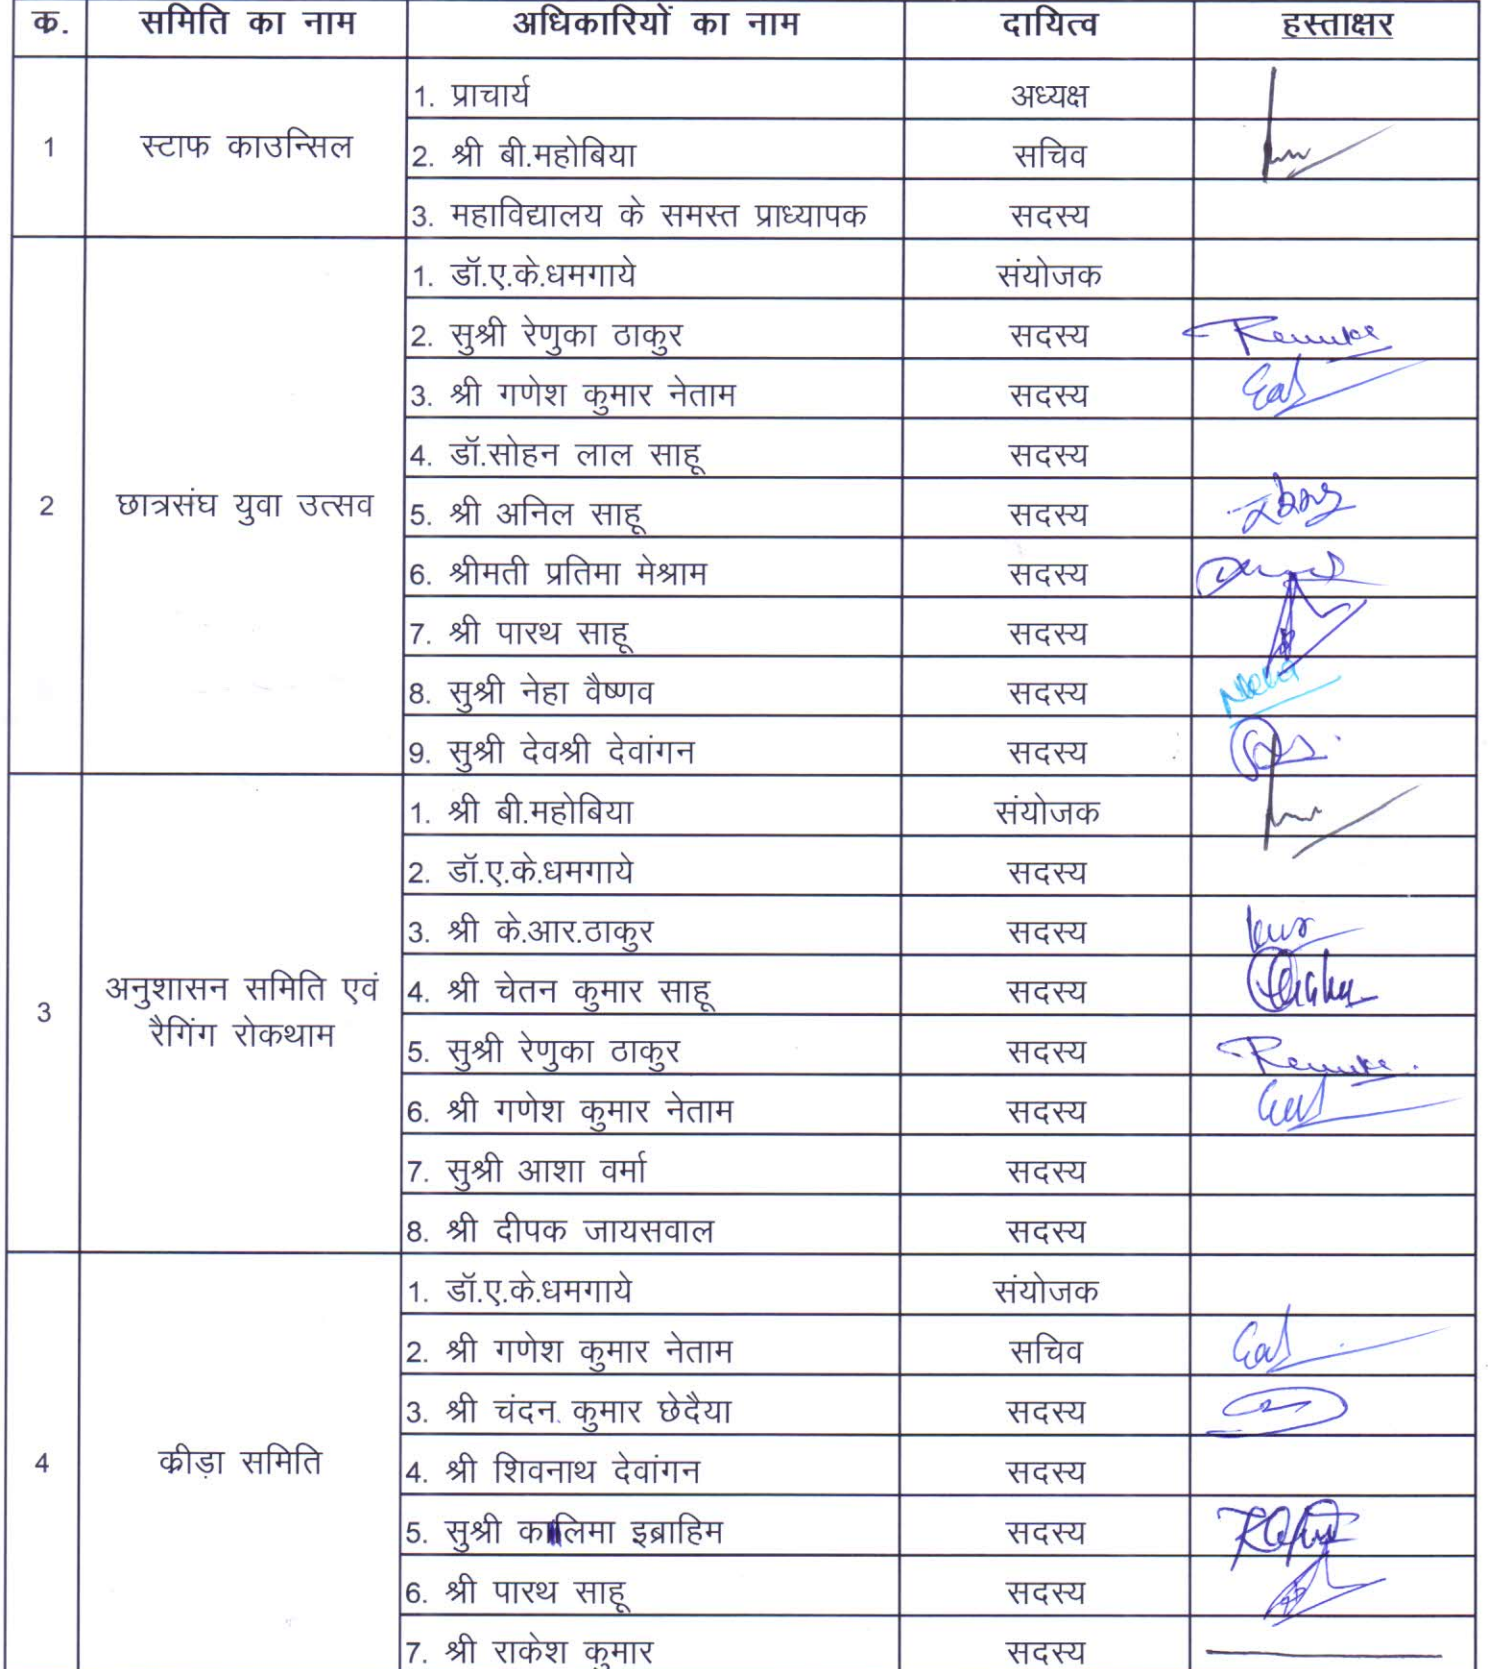 क्र. समिति का नाम अधिकारियों का नाम दायित्व हस्ताक्षर
1 स्टाफ काउन्सिल
1. प्राचार्य अध्यक्ष
2. श्री बी.महोबिया सचिव
3. महाविद्यालय के समस्त प्राध्यापक सदस्य
2 छात्रसंघ युवा उत्सव
1. डॉ.ए.के.धमगाये संयोजक
2. सुश्री रेणुका ठाकुर सदस्य
3. श्री गणेश कुमार नेताम सदस्य
4. डॉ.सोहन लाल साहू सदस्य
5. श्री अनिल साहू सदस्य
6. श्रीमती प्रतिमा मेश्राम सदस्य
7. श्री पारथ साहू सदस्य
8. सुश्री नेहा वैष्णव सदस्य
9. सुश्री देवश्री देवांगन सदस्य
3 अनुशासन समिति एवं
रैगिंग रोकथाम
1. श्री बी.महोबिया संयोजक
2. डॉ.ए.के.धमगाये सदस्य
3. श्री के.आर.ठाकुर सदस्य
4. श्री चेतन कुमार साहू सदस्य
5. सुश्री रेणुका ठाकुर सदस्य
6. श्री गणेश कुमार नेताम सदस्य
7. सुश्री आशा वर्मा सदस्य
8. श्री दीपक जायसवाल सदस्य
4 क्रीड़ा समिति
1. डॉ.ए.के.धमगाये संयोजक
2. श्री गणेश कुमार नेताम सचिव
3. श्री चंदन कुमार छेदैया सदस्य
4. श्री शिवनाथ देवांगन सदस्य
5. सुश्री कालिमा इब्राहिम सदस्य
6. श्री पारथ साहू सदस्य
7. श्री राकेश कुमार सदस्य